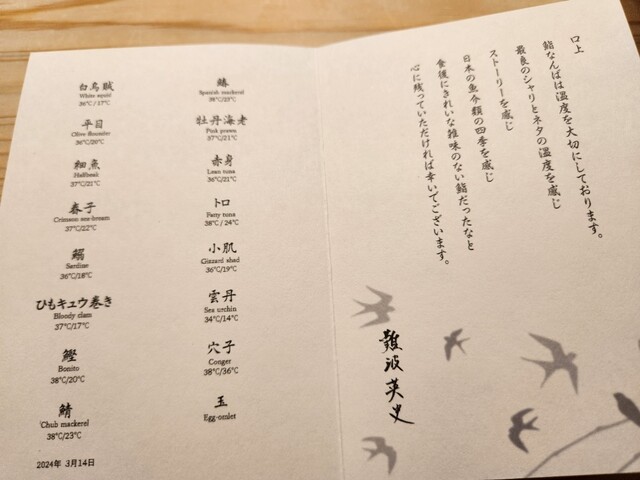 白烏賊
White squid
36℃ / 17℃
平目
Olive flounder
36℃/20℃
細魚
Halfbeak
37℃/21℃
春子
Crimson sea-bream
37℃/22℃
鰯
Sardine
36℃/18℃
ひもキュウ巻き
Bloody clam
37℃/17℃
鰹
Bonito
38℃/20℃
鯖
Chub mackerel
38℃/23℃
2024年 3月14日
鰆
Spanish mackerel
38℃/23℃
牡丹海老
Pink prawn
37℃/21℃
赤身
Lean tuna
36℃/21℃
トロ
Fatty tuna
38℃ / 24℃
小肌
Gizzard shad
36℃/19℃
雲丹
Sea urchin
34℃/14℃
穴子
Conger
38℃/36℃
玉
Egg-omlet
口上
鮨なんばは温度を大切にしております。
最良のシャリとネタの温度を感じ
ストーリーを感じ
日本の魚介類の四季を感じ
食後にきれいな雑味のない鮨だったなと
心に残っていただければ幸いでございます。
難波英史